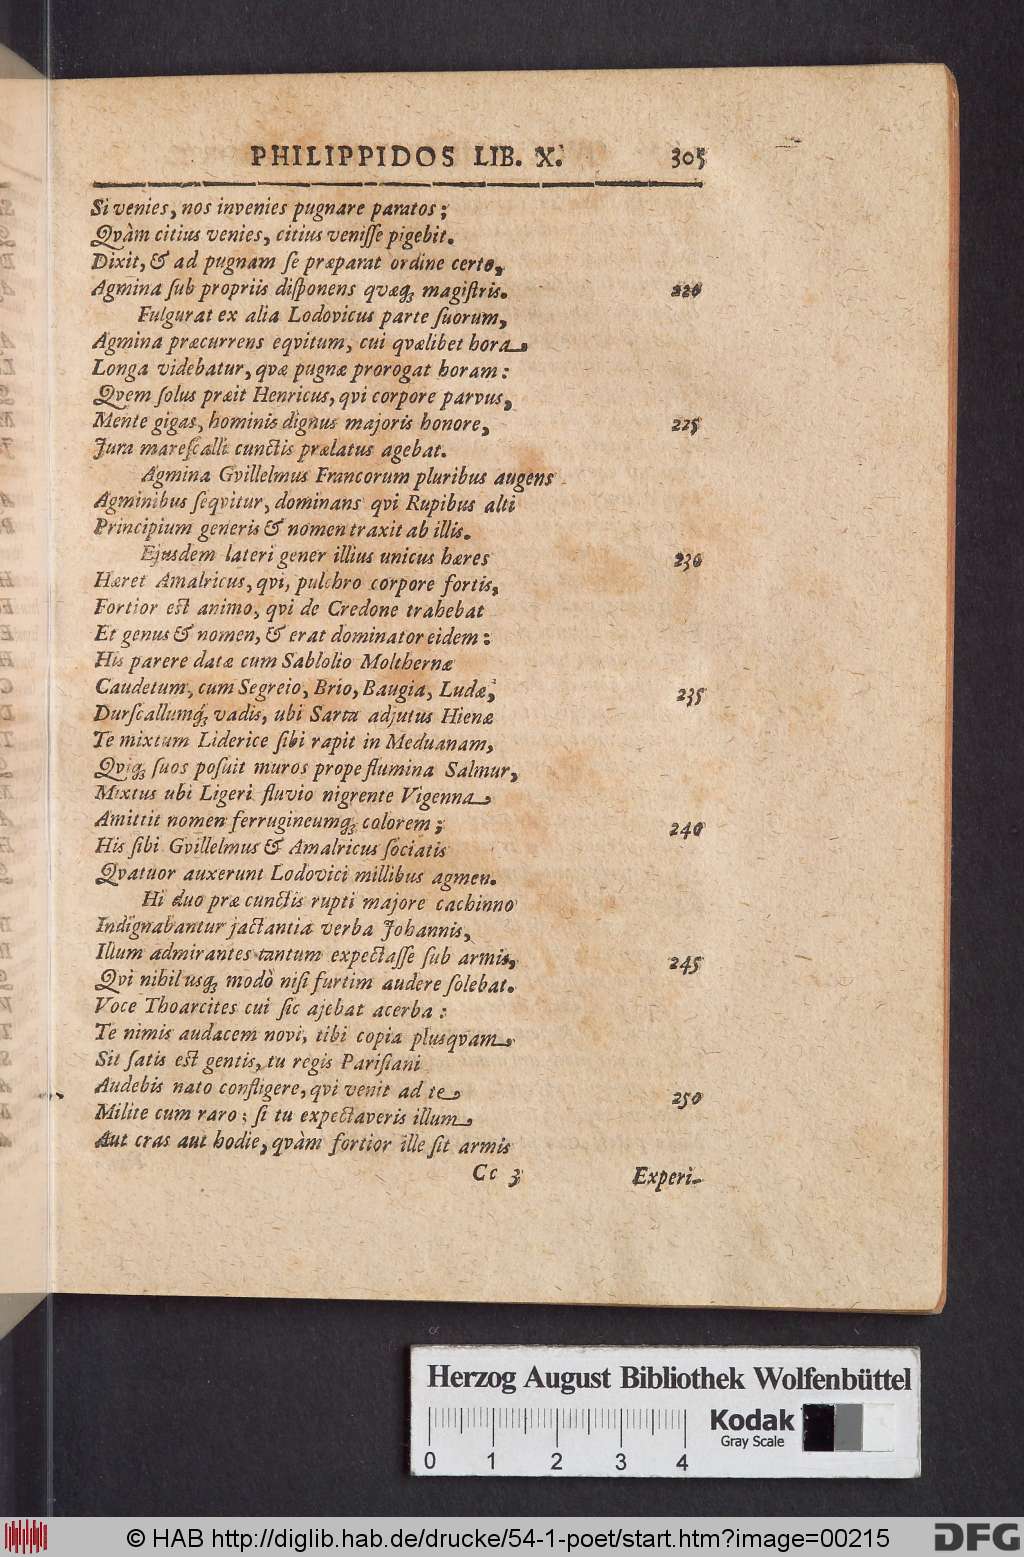 PHILIPPIDOS LIB. X. 305
Si venies, nos invenies pugnare paratos;
Qvàm citius venies, citius venisse pigebit.
Dixit, & ad pugnam se præparat ordine certo,
Agmina sub propriis disponens qvæq; magistris. 220
Fulgurat ex alia Lodovicus parte suorum,
Agmina præcurrens eqvitum, cui qvælibet hora
Longa videbatur, qvæ pugnæ prorogat horam:
Qvem solus præit Henricus, qvi corpore parvus,
Mente gigas, hominis dignus majoris honore, 225
Jura marescalli cunctis prælatus agebat.
Agmina Gvillelmus Francorum pluribus augens
Agminibus seqvitur, dominans qvi Rupibus alti
Principium generis & nomen traxit ab illis.
Ejusdem lateri gener illius unicus hæres 230
Hæret Amalricus, qvi, pulchro corpore fortis,
Fortior est animo, qvi de Credone trahebat
Et genus & nomen, & erat dominator eidem:
His parere datæ cum Sablolio Molthernæ
Caudetum, cum Segreio, Brio, Baugia, Ludæ, 235
Durscallumq; vadis, ubi Sarta adjutus Hienæ
Te mixtum Liderice sibi rapit in Meduanam,
Qviq; suos posuit muros prope flumina Salmur,
Mixtus ubi Ligeri fluvio nigrente Vigenna
Amittit nomen ferrugineumq; colorem; 240
His sibi Gvillelmus & Amalricus sociatis
Qvatuor auxerunt Lodovici millibus agmen.
Hi duo præ cunctis rupti majore cachinno
Indignabantur jactantia verba Johannis,
Illum admirantes tantum expectasse sub armis, 245
Qvi nihil usq; modò nisi furtim audere solebat.
Voce Thoarcites cui sic ajebat acerba:
Te nimis audacem novi, tibi copia plusqvam
Sit satis est gentis, tu regis Parisiani
Audebis nato confligere, qvi venit ad te 250
Milite cum raro; si tu expectaveris illum
Aut cras aut hodie, qvàm fortior ille sit armis
Cc 3 Experi-
Herzog August Bibliothek Wolfenbüttel
Kodak
Gray Scale
0 1 2 3 4
© HAB http://diglib.hab.de/drucke/54-1-poet/start.htm?image=00215
DFG